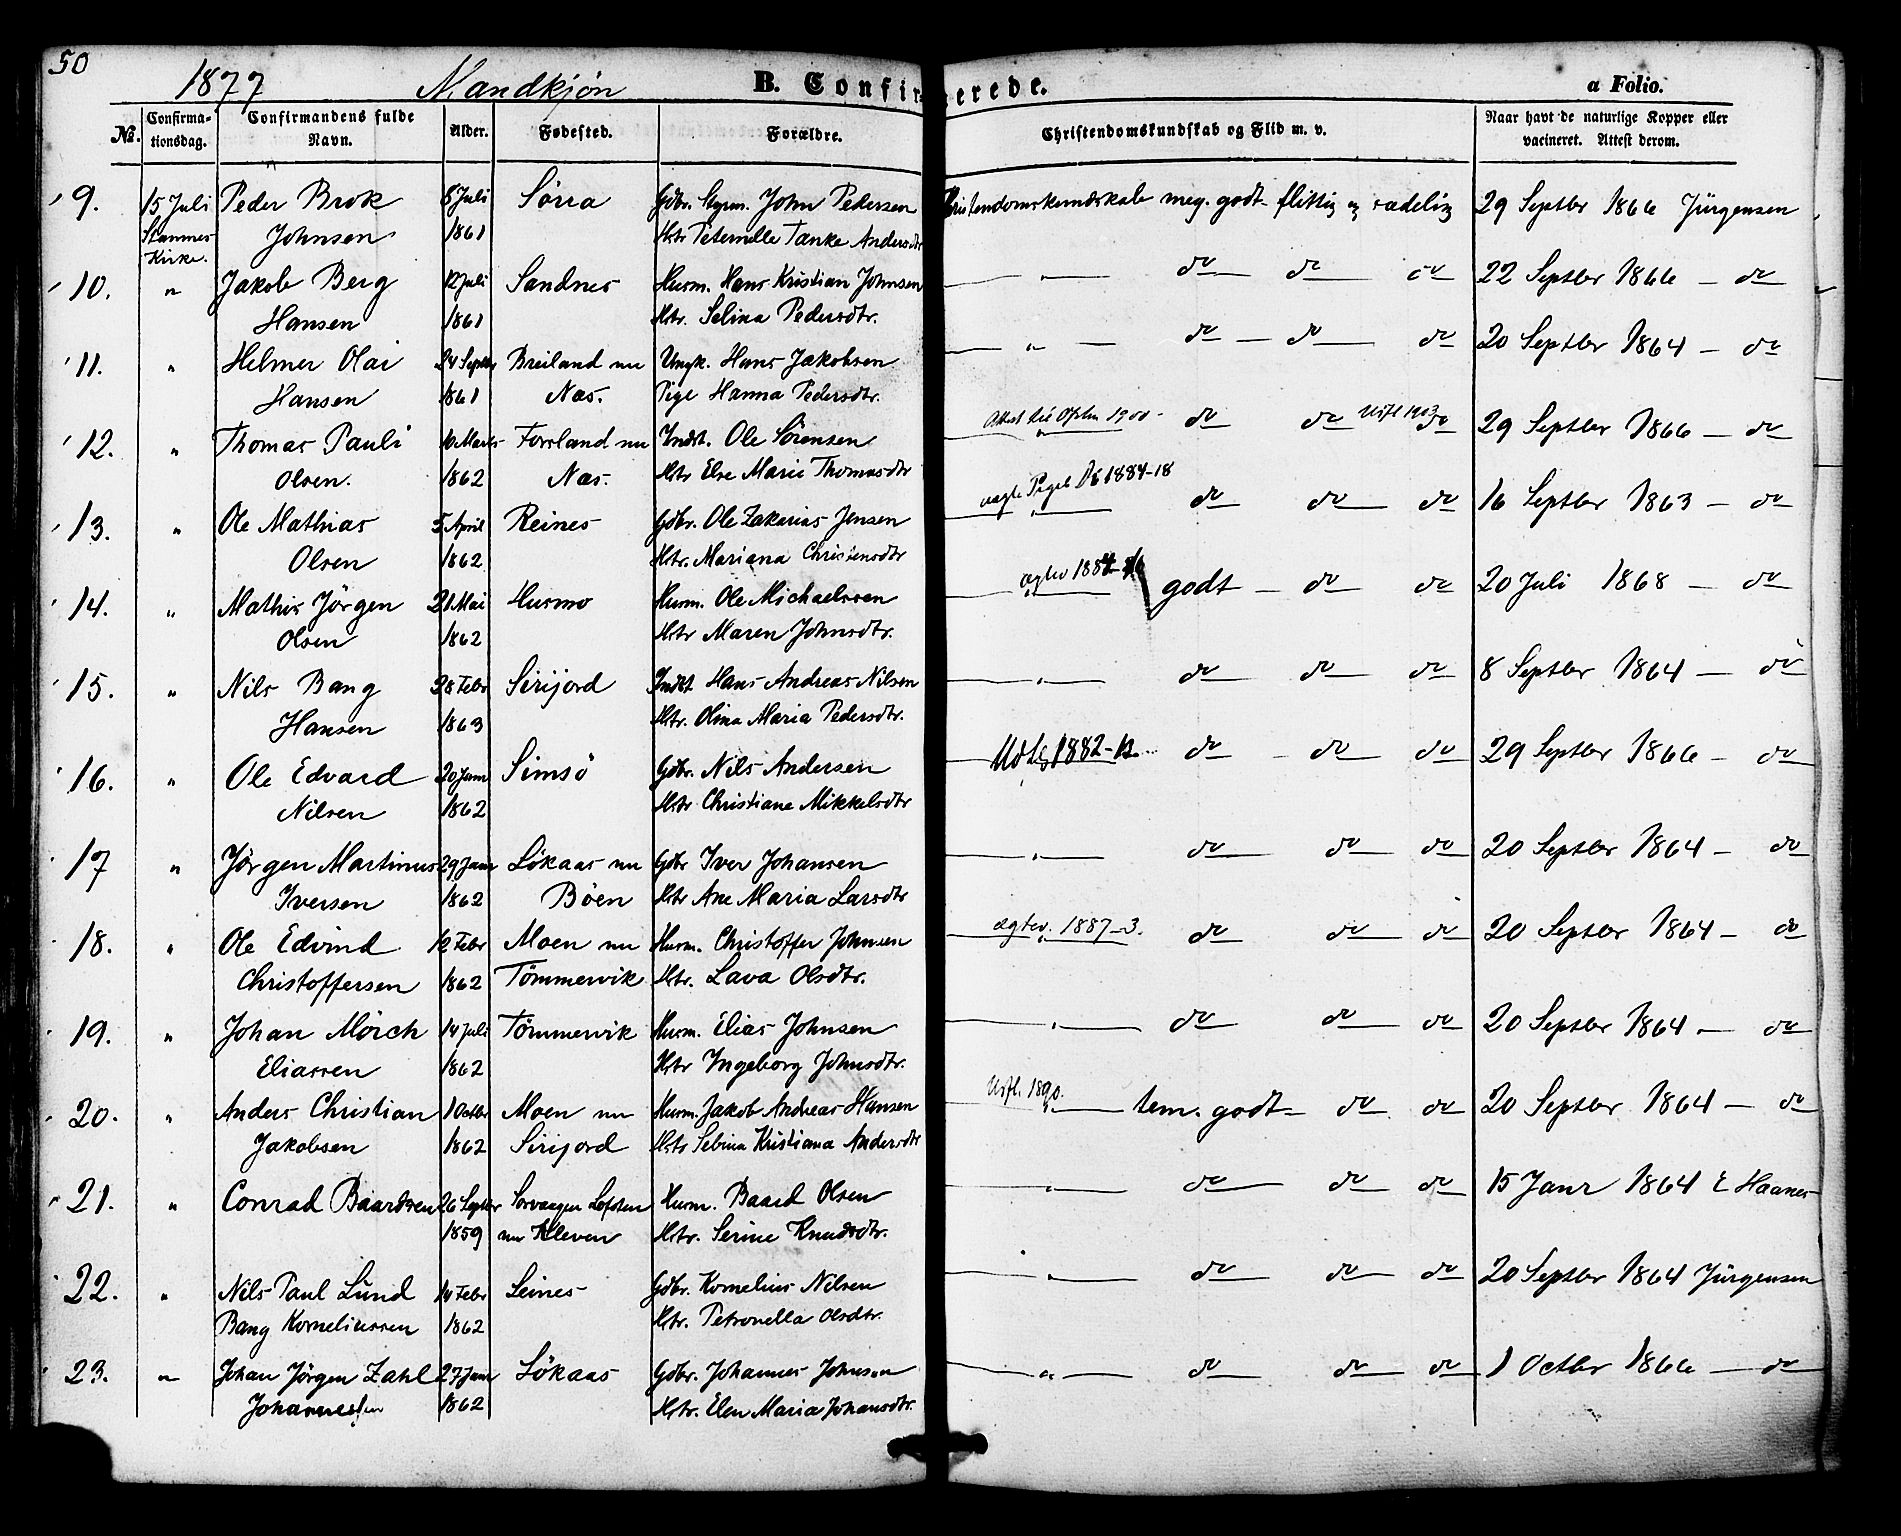 50
1877 Mandkjøn B. Confirmerede. a Folio.
No. Confirma-tionsdag. Confirmandens fulde Navn. Alder. Fødested. Forældre. Christendomskundskab og Flid m. v. Naar havt de naturlige Kopper eller vacineret. Attest derom.
9. 15 Juli Peder Brok 8 Juli Sørra Gdbr. Styrm. John Pedersen Christendomskundskab meg. godt flittig og sædelig 29 Septbr 1866 Jürgensen
Stamnes Kirke. Johnsen 1861 Hstr Peternelle Tanke Andersdtr
10. " Jakob Berg 12 Juli Sandnes Husm. Hans Kristian Johnsen " do do do 22 Septbr 1866 - do
Hansen 1861 Hstr. Selina Pedersdtr.
11. " Helmer Olai 24 Septbr Breiland nu Ungk. Hans Jakobsen " do do do 20 Septbr 1864 - do
Hansen 1861 Næs. Pige Hanna Pedersdtr.
12. " Thomas Pauli 10 Marts Forrland nu Indst. Ole Sørensen Attest til 1900 - " do do Udfl 1903 do 29 Septbr 1866 - do
Olsen. 1862 Næs. Hstr Else Marie Thomasdtr
13. " Ole Mathias 5 April Reines Gdbr. Ole Zakarias Jensen 1884-18 " do do do 16 Septbr 1863 - do
Olsen 1862 Hstr. Mariana Christensdtr
14. " Mathis Jørgen 21 Mai Husmo Husm. Ole Michaelssen ægtev 188 " godt - do do 20 Juli 1868 - do
Olsen 1862 Hstr Maren Johnsdtr.
15. " Nils Bang 28 Febr Sirijord Indst Hans Andreas Nilsen " do do do 8 Septbr 1864 - do
Hansen 1863 Hstr. Olina Maria Pedersdtr.
16. " Ole Edvard 20 Juni Simsø Gdbr. Nils Andersen 1882- do - do do 29 Septbr 1866 - do
Nilsen 1862 Hstr Christiane Mikkelsdtr
17 " Jørgen Martinus 29 Janr Løkaas nu Gdbr Iver Johansen " do do do 20 Septbr 1864 - do
Iversen 1862 Bøen Hstr Ane Maria Larsdtr
18. " Ole Edvind 12 Febr Moen nu Husm. Christoffer Johnsen ægtev. 1887-3. " do do do 20 Septbr 1864 - do
Christoffersen 1862 Tömmervik Hstr. Lava Olsdtr.
19. " Johan Mörch 14 Juli Tömmervik Husm. Elias Johnsen " do do do 20 Septbr 1864 - do
Eliassen 1862 Hstr Ingeborg Johnsdtr.
20. " Anders Christian 1 Octbr Moen nu Husm. Jakob Andreas Hansen Udfl. 1890. " tem. godt - do do 20 Septbr 1864 - do
Jakobsen 1862 Sirijord Hstr Sebina Kristiana Andersdtr
21. " Conrad Baardsen 26 Septbr Sorvaagen Lofoten Husm. Baard Olsen " do do do 15 Janr 1864 E Haanes
1859 nu Kleven Hstr. Serine Knudsdtr.
22. " Nils Paul Lund 14 Febr Seines Gdbr. Kornelius Nilsen " do do do 20 Septbr 1864 Jürgensen
Bang Korneliussen 1862 Hstr. Petronella Olsdtr.
23. " Johan Jørgen Zahl 27 Janr Løkaas Gdbr. Johannes Johnsen " do do do 1 Octbr 1866 - do
Johannessen 1862 Hstr. Elen Maria Johansdtr.